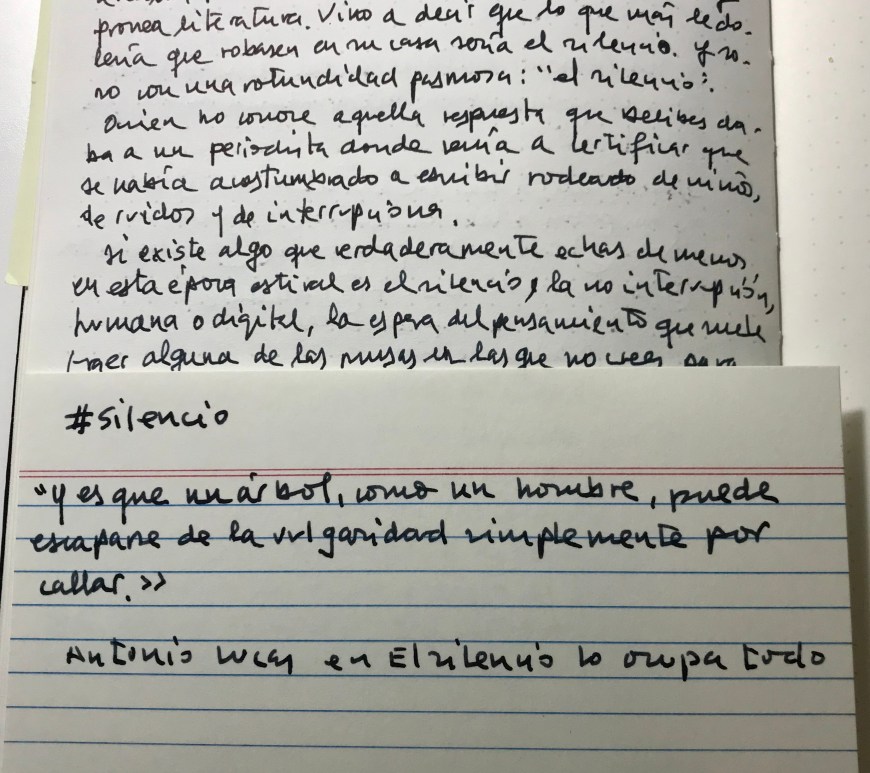 pronea literatura. Vino a decir que lo que más le do-
lería que robasen en su casa sería el silencio. Y so-
nó con una rotundidad pasmosa: "el silencio".
Quien no conoce aquella respuesta que Delibes da-
ba a un periodista donde venía a certificar que
se había acostumbrado a escribir rodeado de niños,
de ruidos y de interrupciones.
Si existe algo que verdaderamente echas de menos
en esta época estival es el silencio, la no interrupción,
humana o digital, la espera del pensamiento que suele
traer alguna de las musas en las que no crees para
#silencio
"Y es que un árbol, como un hombre, puede
escaparse de la vulgaridad simplemente por
callar.»
Antonio Lucas en El silencio lo ocupa todo